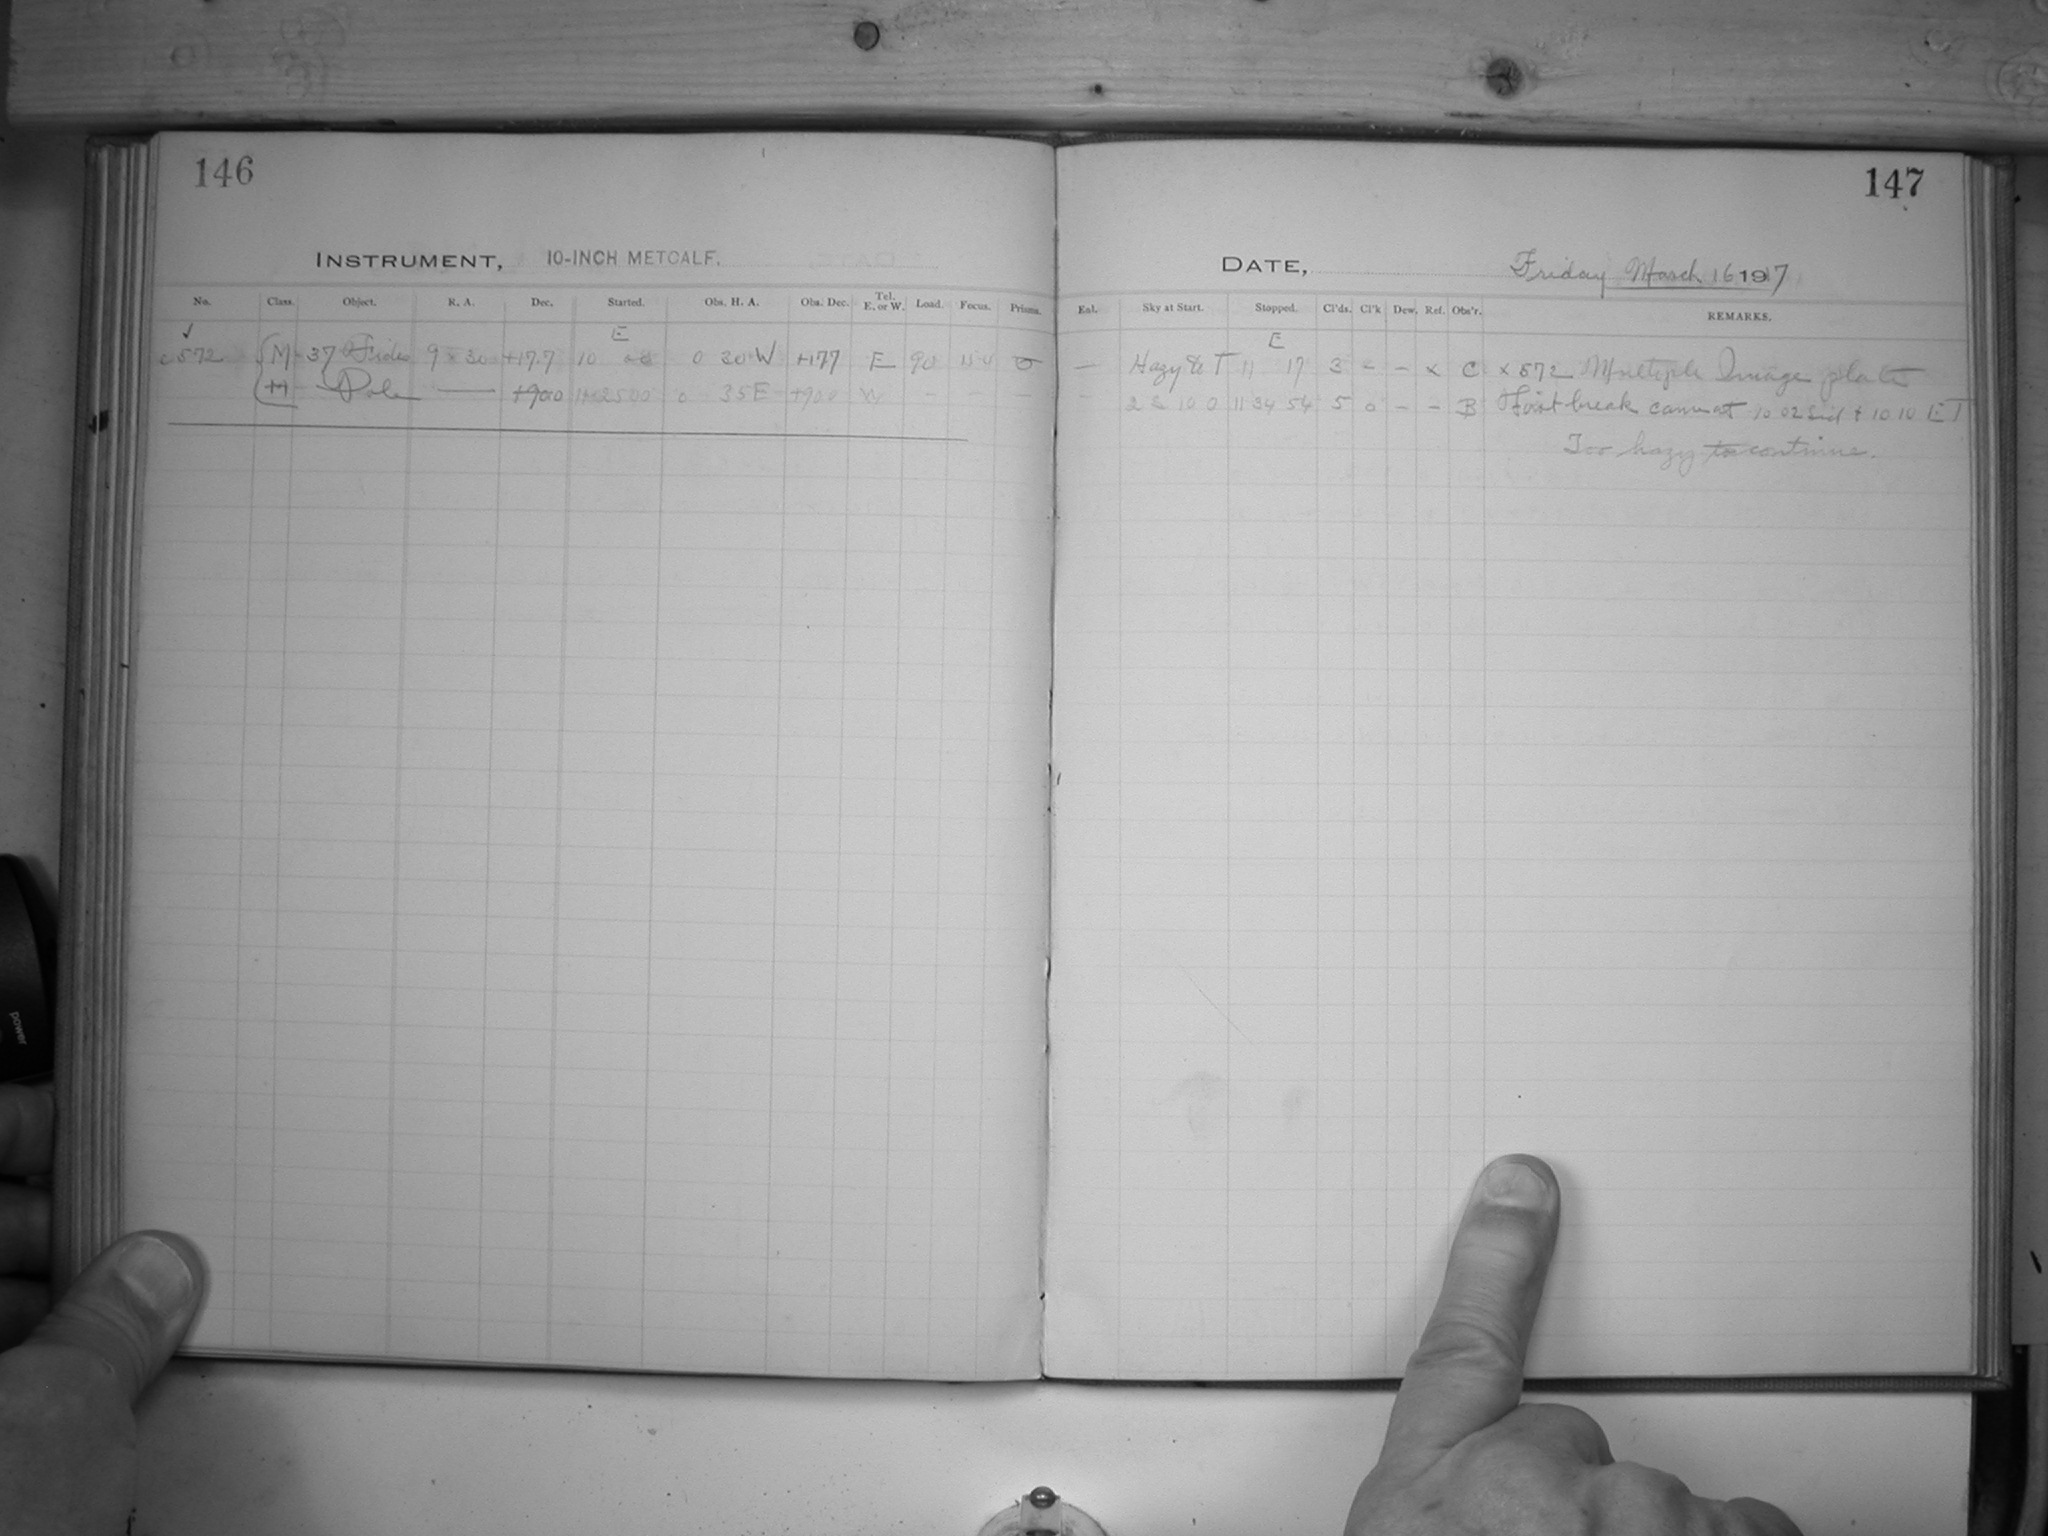 146
INSTRUMENT, 10-INCH METCALF.
No. Class. Object. R. A. Dec. Started. Obs. H. A. Obs. Dec. Tel. E. or W. Load. Focus. Prisms.
E
572 M 37 9 30 +17.7 10 0 30 W +177 E 90
H Pole — +900 0 35 E +900 W – – –
147
DATE, Friday March 16 1917
Eal. Sky at Start. Stopped. Cl'ds. Cl'k Dew. Ref. Obs'r. REMARKS.
E
— Hazy & T 11 17 3 – – x C x 572 Multiple Image plate
2 2 10 0 11 34 54 5 0 – – B First break came at 10 02 Sid & 10 10 ET
Too hazy to continue.
power